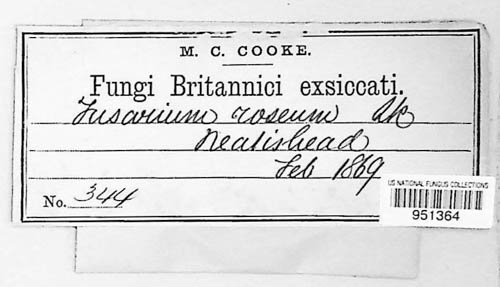 M. C. COOKE.
Fungi Britannici exsiccati.
Fusarium roseum Lk
Neatishead
Feb 1869
No. 344
US NATIONAL FUNGUS COLLECTIONS
951364